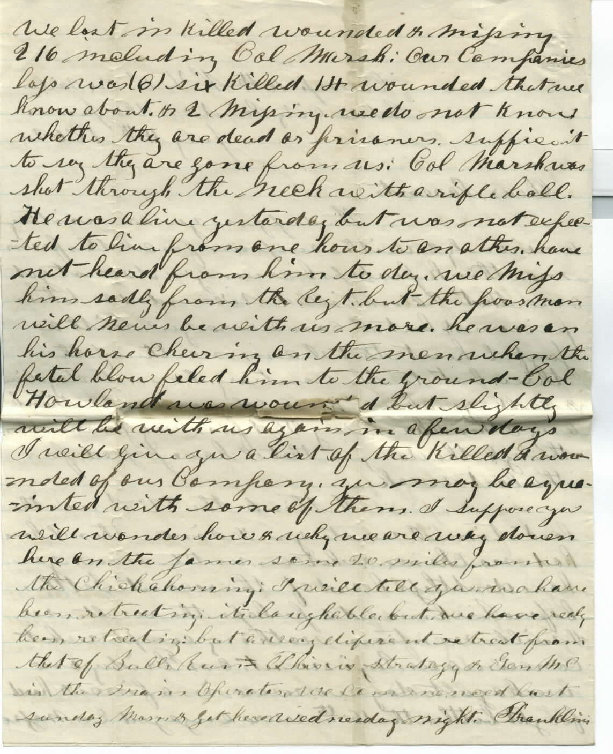 We lost in killed wounded & missing
216 including Col Marsh: Our Companies
loss was (6) six killed 14 wounded that we
know about. & 2 Missing. we do not know
whether they are dead or prisoners. sufficient
to say they are gone from us: Col Marsh was
shot through the neck with a rifle ball.
He was alive yesterday but was not expec-
-ted to live from one hour to another. have
not heard from him to day. we Miss
him sadly from the Regt. but the poor man
will never be with us more. he was on
his horse cheering on the men when the
fatal blow filed him to the ground - Col
Howland was wounded but slightly
will be with us again in a few days
I will give yu a list of the Killed & wou-
-nded of our Company. yu may be aqua-
-inted with some of them. I suppose yu
will wonder how & why we are way down
here on the James some 20 miles from
the Chickahominy: I will tell yu we have
been retreating. its laughable, but we have realy
been retreating but a very diferent retreat from
that of Bulls Run strategy & Gen Mc
is the Main Operator. We commenced last
sunday Morn & got here Wednesday night. Franklins